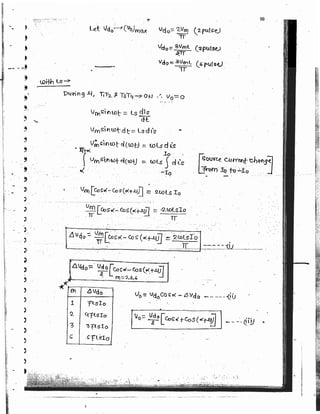 50
Let Vdo → (Vo)max Vdo = 2Vm/π (2pulse)
Vdo = (3pulse)
Vdo = (6pulse)
with Ls →
During μ, T1T2 & T3T4 → ON ∴ Vo = 0
Vm sinωt = Ls dis/dt
Vm sinωt dt = Ls dis
Vm sinωt d(ωt) = ωLs dis
∫ Vm sinωt d(ωt) = ωLs ∫ dis
Io
-Io
α
[source current change
from Io to -Io]
Vm[cosα - cos(α+μ)] = 2ωLs Io
Vm/π [cosα - cos(α+μ)] = 2ωLsIo/π
ΔVdo = Vm/π [cosα - cos(α+μ)] = 2ωLsIo/π ------ (i)
ΔVdo = Vdo/2 [cosα - cos(α+μ)]
m = 2,3,6
m ΔVdo
1 fLsIo
2 4fLsIo
3 3fLsIo
6 6fLsIo
Vo = Vdo cosα - ΔVdo ------ (ii)
Vo = Vdo/2 [cosα + cos(α+μ)] ---- (iii)